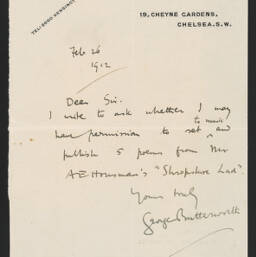 TEL: 5900 KENSINGTON
19, CHEYNE GARDENS,
CHELSEA. S.W.
Feb 26
1912
Dear Sir.
I write to ask whether I may
have permission to set to music and
publish 5 poems from Mr
A E Housman's "Shropshire Lad".
Yours truly
George Butterworth